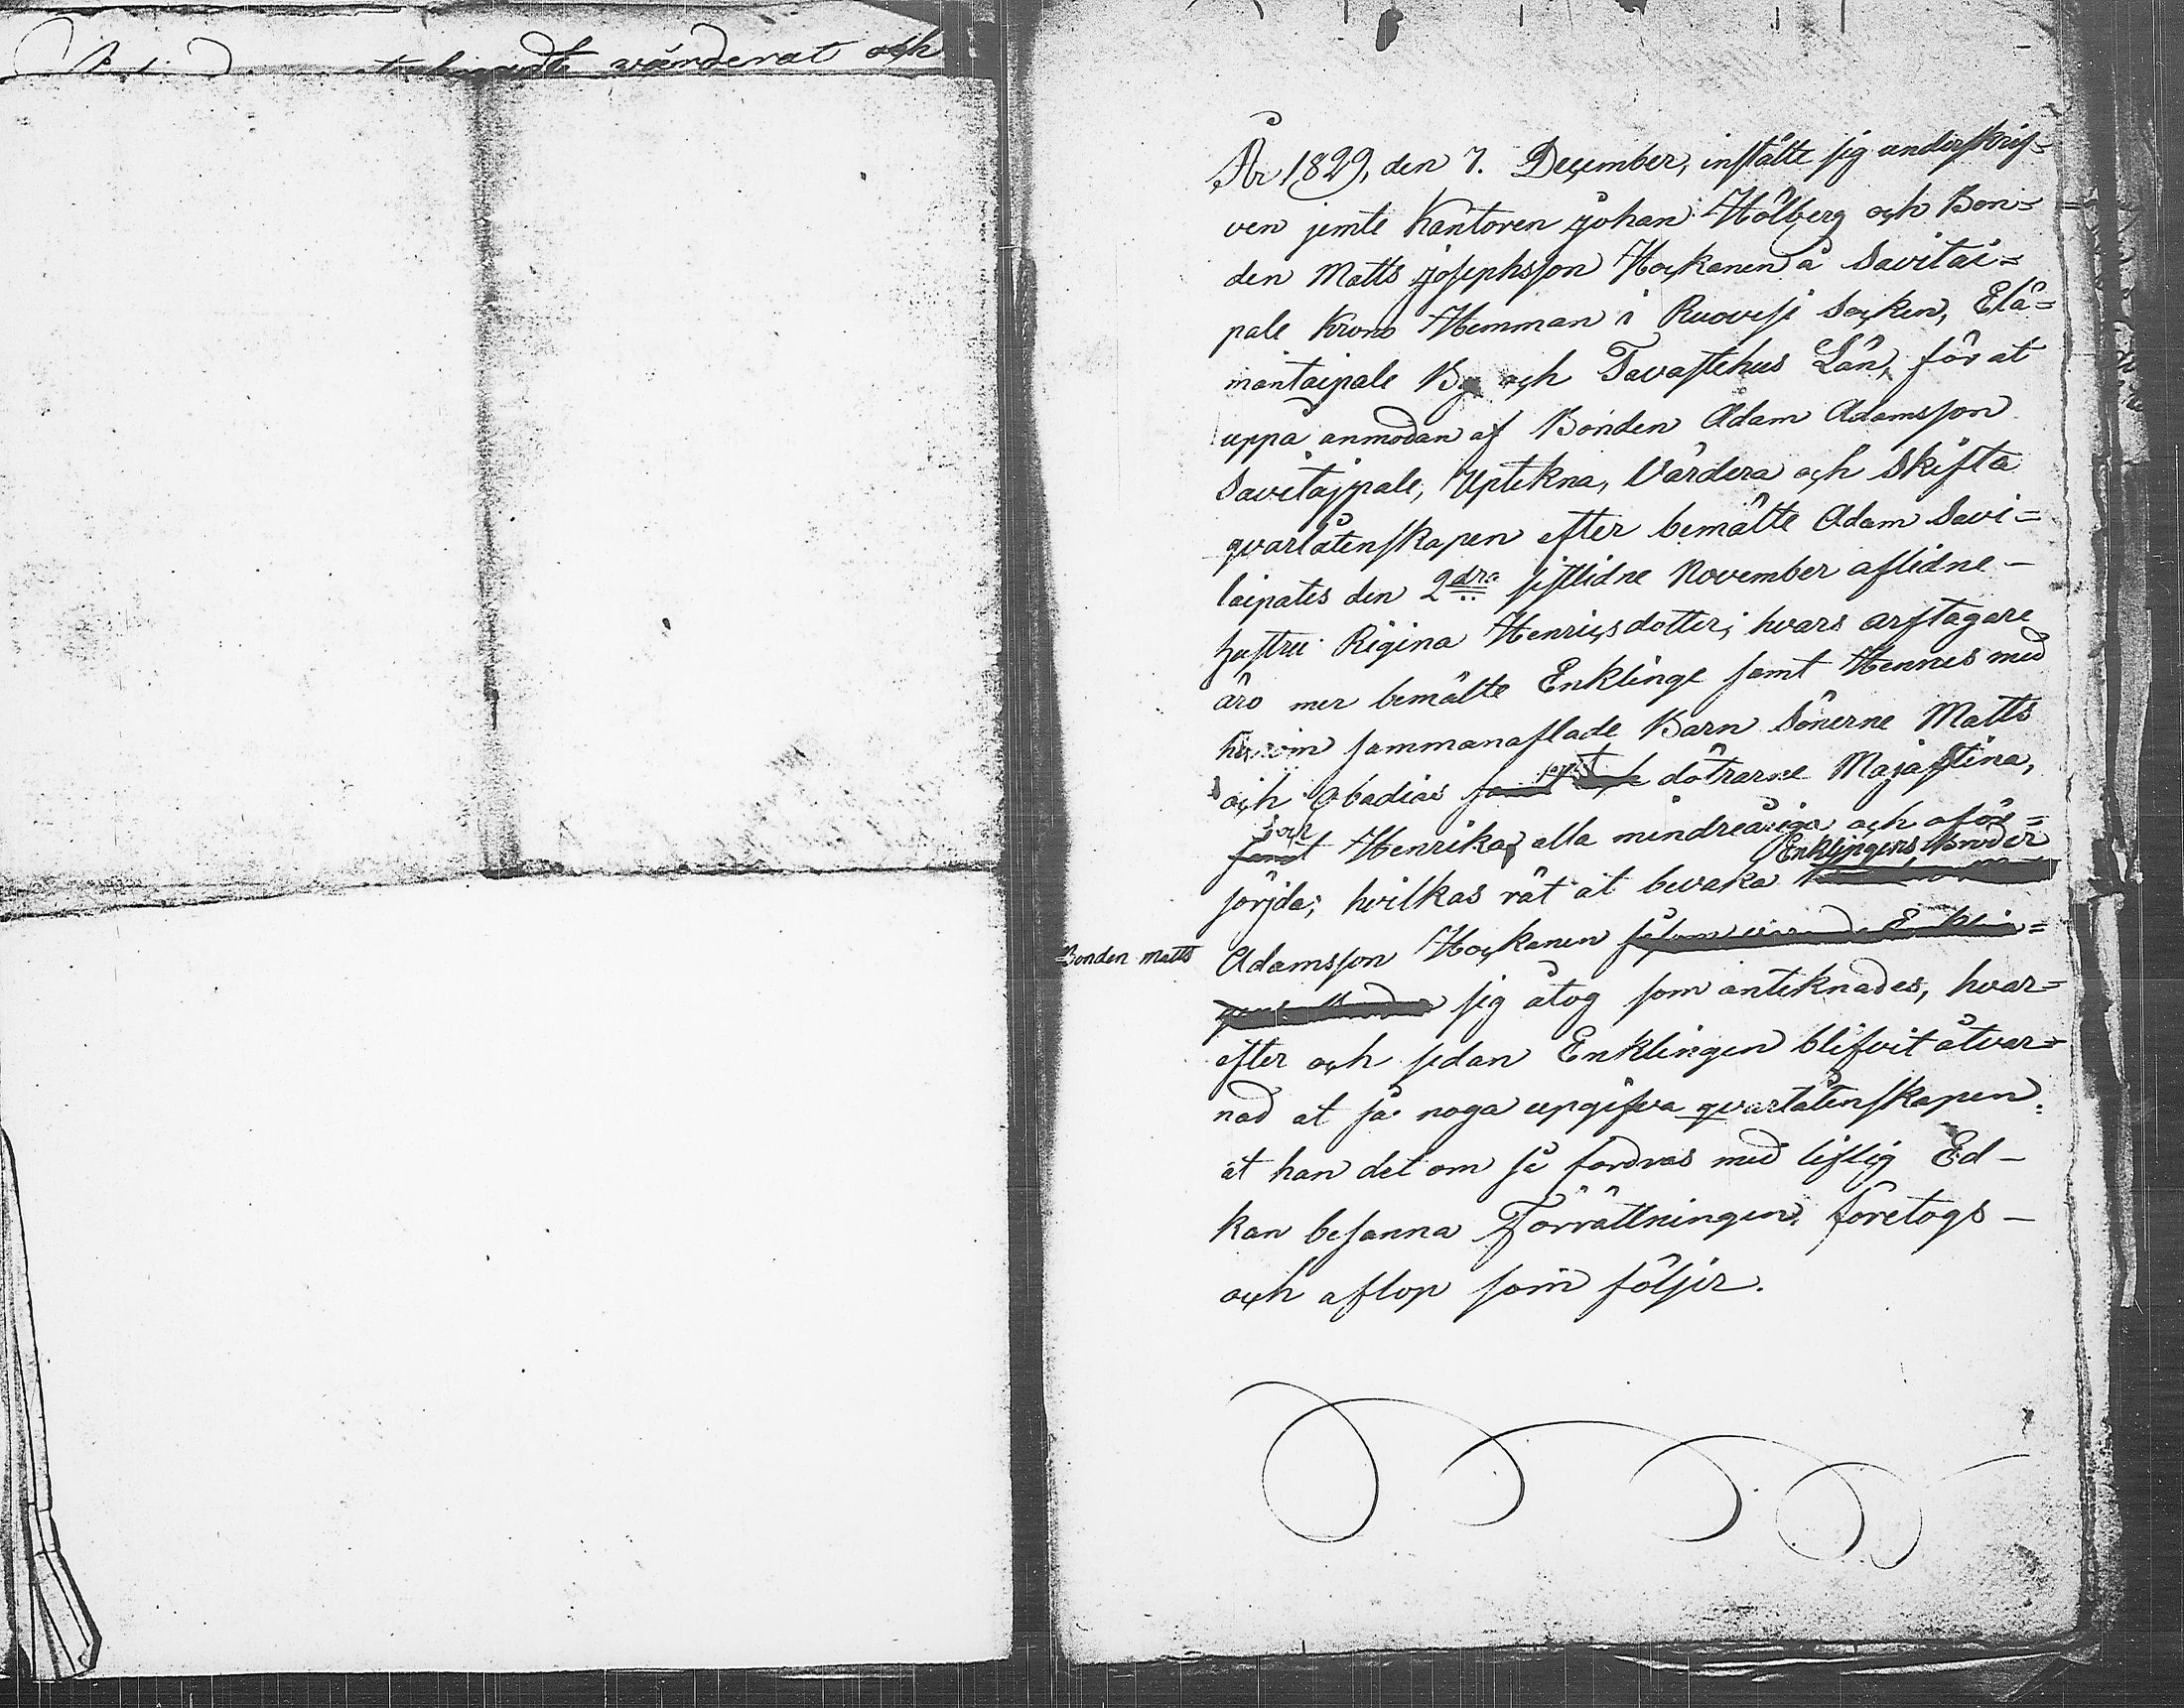 värderat och
År 1829, den 7. December, instälte sig underskrif=
ven jemte Kantoren Johan Hölberg och Bon=
den Matts Josephsson Hockanen å Savitai=
pale Krono Hemman i Ruovesi Socken, Elä=
mäntaipale By och Tavastehus Län, för at
uppå anmodan af Bonden Adam Adamsson
Savitaipale, Uptekna, Värdera och Skifta
qvarlåtenskapen efter bemälte Adam Savi=
taipales den 2dra sistlidne November aflidne –
hustru Regina Henricsdotter; hvars arftagare
äro mer bemälte Enkling samt Hennes med
honom sammanaflade Barn Sönerne Matts
och Abadias samt döttrarne Maja Stina,
och
samt Henrika, alla mindreåriga och oför=
Enklingens Broder
sörjda; hvilkas rät at bevaka
Bonden Matts
Adamsson Hockanen såsom varande Enklin=
gens Broder sig åtog som anteknades, hvar=
efter och sedan Enklingen blifvit åtvar=
nad at så noga upgifva qvarlåtenskapen
at han det om så fordras med liflig Ed –
kan besanna Förrättningen företogs –
och aflop som följer.